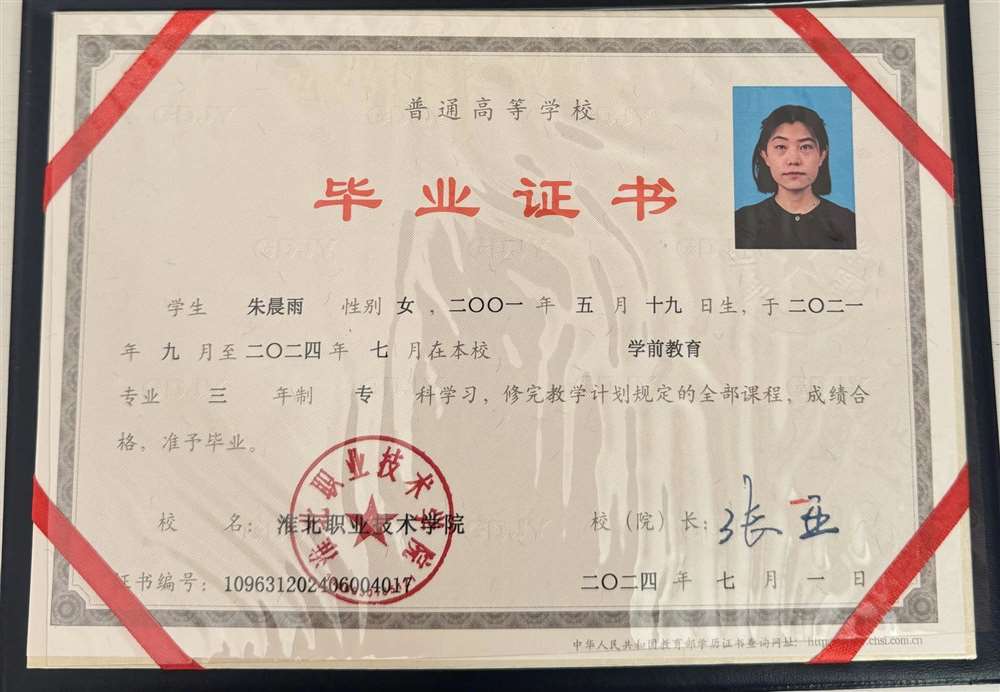 普通高等学校
毕业证书
学生 朱晨雨 性别 女 ，二〇〇一 年 五 月 十九 日生，于 二〇二一
年 九 月至 二〇二四 年 七 月在本校 学前教育
专业 三 年制 专 科学习，修完教学计划规定的全部课程，成绩合
格，准予毕业。
淮北职业技术学院
校 名：淮北职业技术学院 校（院）长：张亚
证书编号：109631202406004017 二〇二四 年 七 月 一 日
中华人民共和国教育部学历证书查询网址：
chsi.com.cn